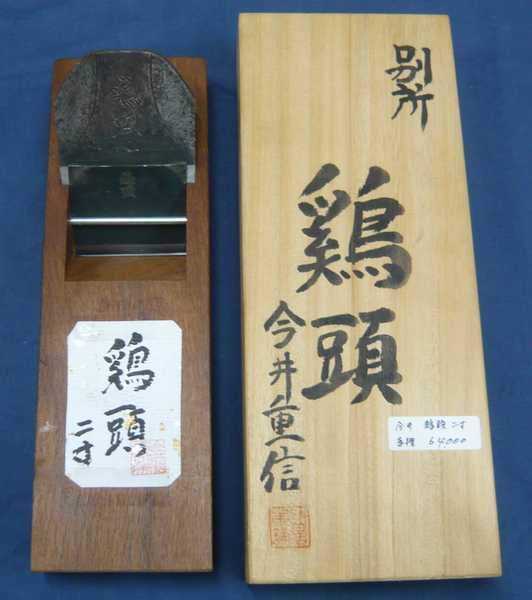 鶏頭
二寸
別所
鶏頭
今井重信
今井 鶏頭 二寸
64,000